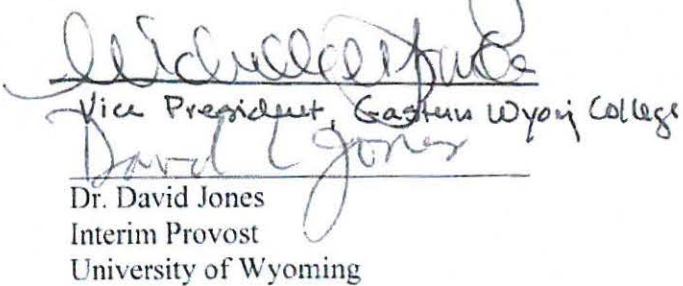 Michelle
Vice President, Eastern Wyomi College
David L Jones
Dr. David Jones
Interim Provost
University of Wyoming